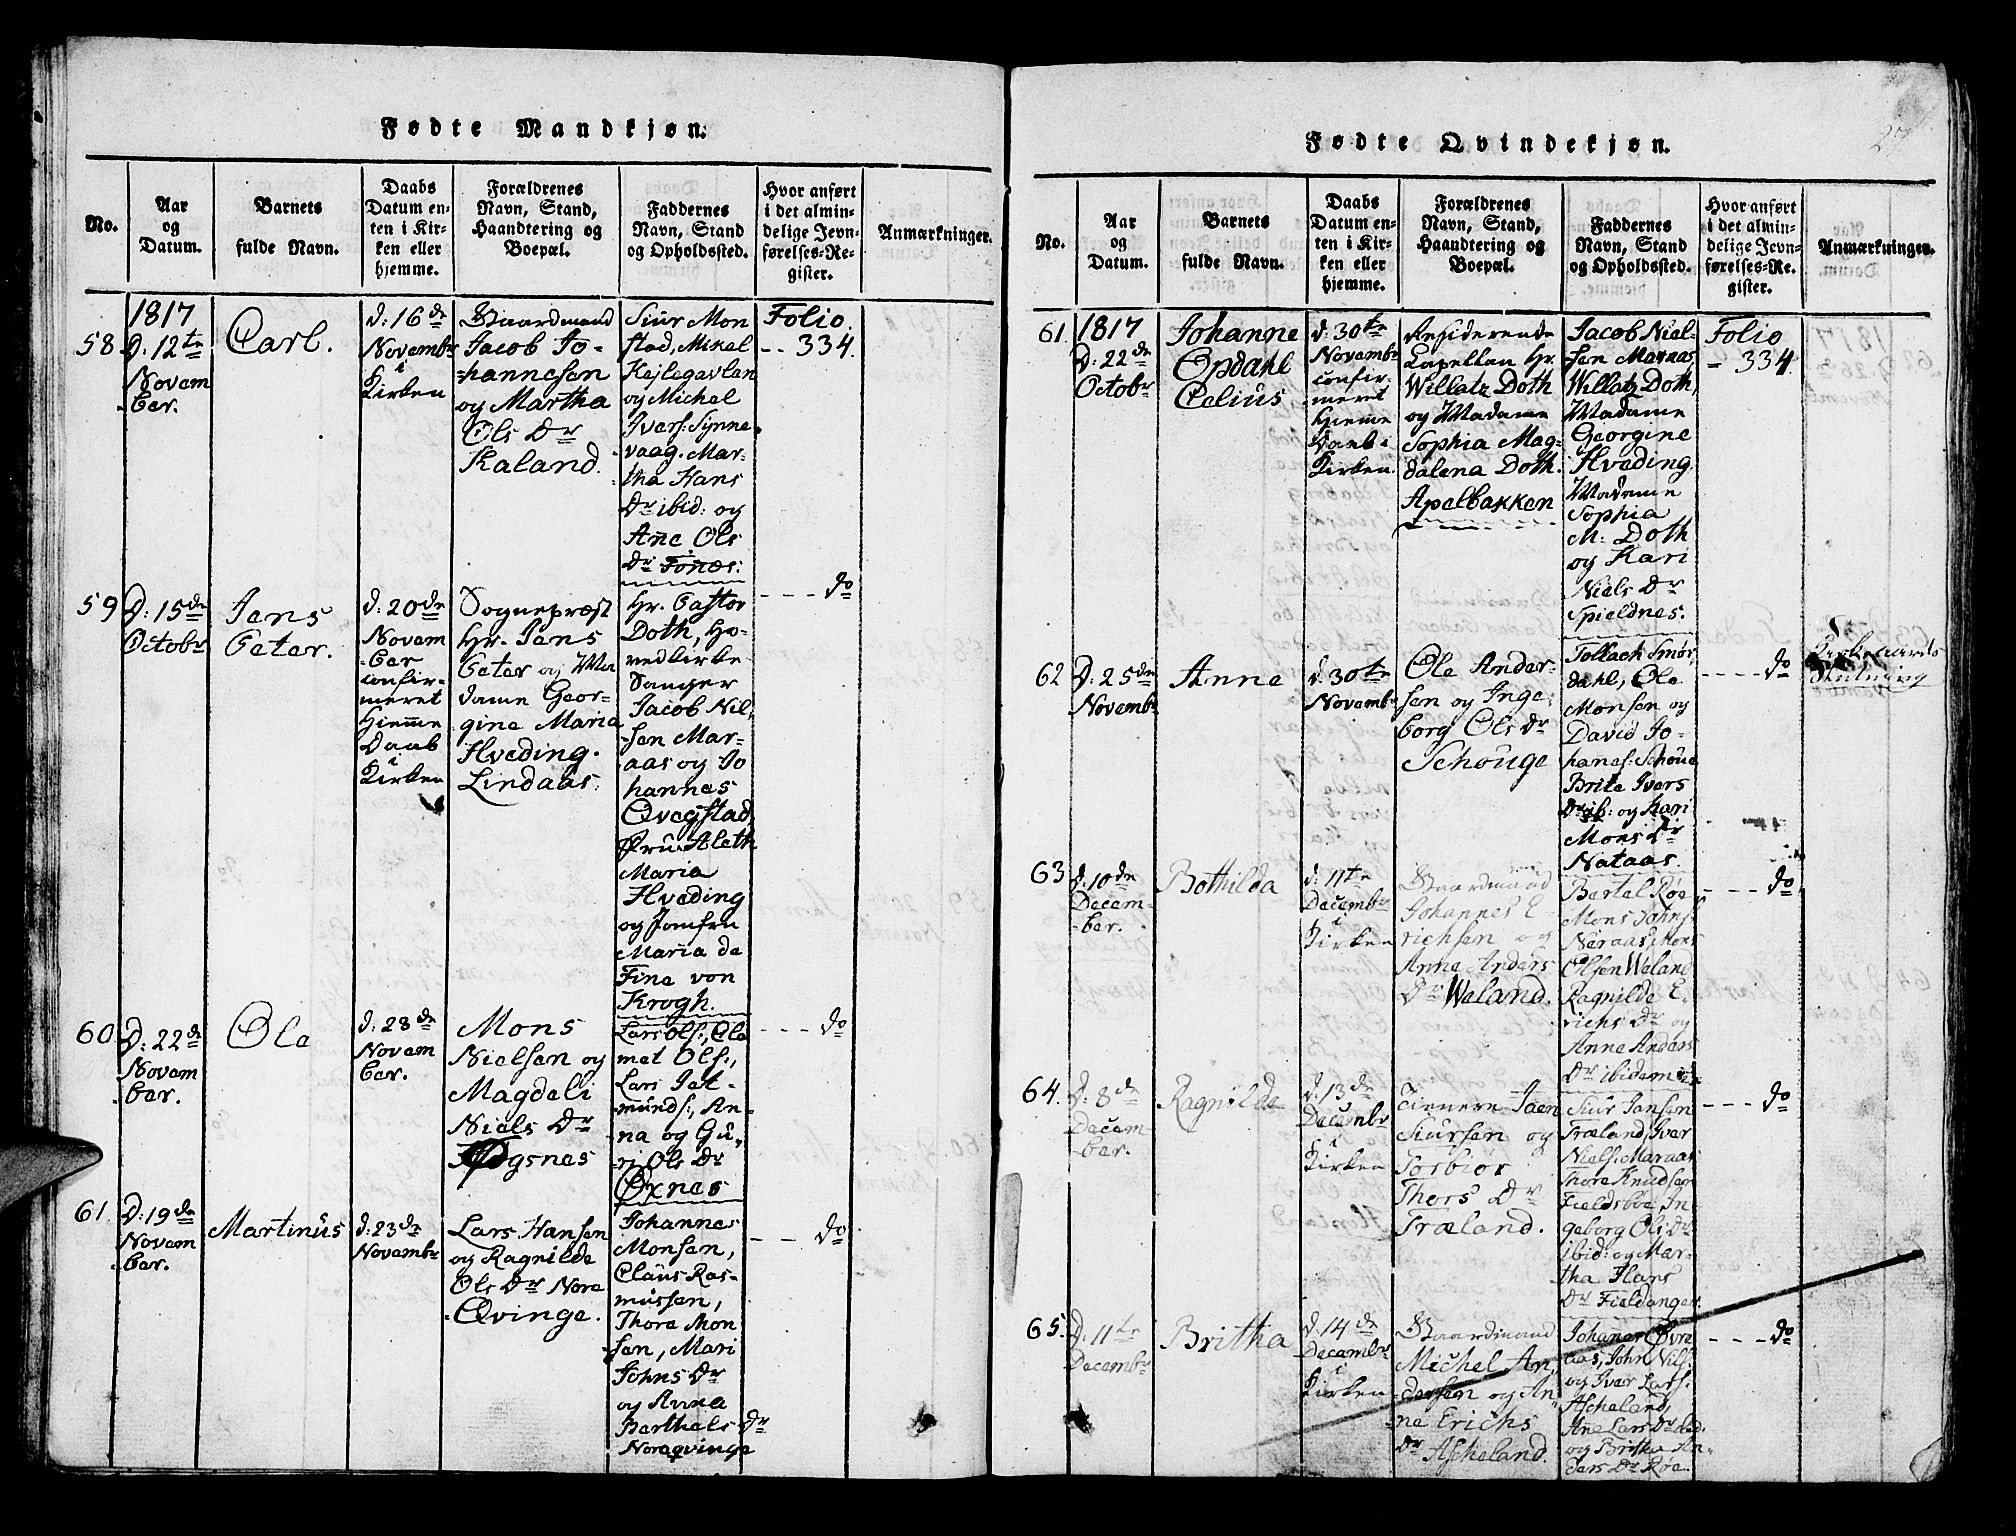 Fødte Mandkjøn.
No.
Aar
og
Datum.
Barnets
fulde Navn.
Daabs
Datum en-
ten i Kir-
ken eller
hjemme.
Forældrenes
Navn, Stand,
Haandtering og
Boepæl.
Faddernes
Navn, Stand
og Opholdssted.
Hvor anført
i det almin-
delige Jevn-
førelses-Re-
gister.
Anmærkninger.
58
1817
D: 12te
Novem
ber.
Carl.
d: 16de
Novembr
i
Kirken
Gaardmand
Jacob Jo-
hannesen
og Martha
Ols Dr
Kaland.
Siur Mon
stad, Mikal
Kejlegavlen
og Michel
Ivers: Synne
vaag. Mar-
tha Hans
Dr ibid: og
Ane Ols
Dr Fonæs:
Folio
-- 334.
59
D: 15de
Octobr
Jens
Peter.
d: 20de
Novem
ber
confir-
meret
Hjemme
Daab
i
Kirken
Sognepræst
Hr. Jens
Peter og Ma
dame Geor-
gine Maria
Hveding.
Lindaas.
Hr. Pastor
Doth, Ho-
vedkirke-
Sanger
Jacob Nil-
sen Mar-
aas og Jo
hannes
Qvegstad,
Fru Aleth
Maria
Hveding
og Jomfru
Maria de
Fine von
Krogh.
--- do
60
D: 22de
Novem
ber.
Ole
d: 23de
Novem
ber.
Mons
Nielsen og
Magdeli
Niels Dr
Hogsnes
Lars Ols:, Ole
met Ols:,
Lars Jet-
munds:, An-
na og Gu-
ri Ols Dr
Oxnes
--- do
61
D: 19de
Novem
ber.
Martinus
d: 23de
Novembr
Lars Hansen
og Ragnilde
Ols Dr Nore
Qvinge.
Johannes
Monsen,
Claus Ras-
mussen,
Thore Mon
sen, Mari
Johns Dr
og Anna
Barthels Dr
Noreqvinge
--- do
Fødte Qvindekjøn.
27
No.
Aar
og
Datum.
Barnets
fulde Navn.
Daabs
Datum en-
ten i Kir-
ken eller
hjemme.
Forældrenes
Navn, Stand,
Haandtering og
Boepæl.
Faddernes
Navn, Stand
og Opholdssted.
Hvor anført
i det almin-
delige Jevn-
førelses-Re-
gister.
Anmærkninger.
61.
1817
D: 22de
Octobr
Johanne
Opdahl
Celius
d: 30te
Novembr
confir-
meret
Hjemme
Daab i
Kirken.
Residerende
Capellan Hr.
Willatz Doth
og Madame
Sophia Mag-
dalena Doth.
Apelbakken
Jacob Niel-
sen Maraas
Willatz Doth,
Madame
Georgine
Hveding,
Madame
Sophia
M: Doth
og Kari
Niels Dr
Spieldnes.
Folio
- 334.
62
D: 25de
Novembr
Anne
d: 30te
Novembr
Ole Ander-
sen og Inge-
borg Ols Dr
Schouge
Tollach Smør,
dahl, Ole
Monsen og
David Jo-
hanes: Schoue
Brite Ivers
Dr ib: og Kari
Mons Dr
Nataas.
--- do
Kirkegaards
63
d: 10de
Decem-
ber.
Bothilda
d: 11te
Decembr
i
Kirken
Gaardmand
Johannes E-
richsen og
Anne Anders
Dr Weland.
Bertel Røe
Mons Johns:
Neraas, Mons
Olsen Weland
Ragnilde E-
richs Dr og
Anne Anders
Dr ibidem
--- do
64.
D: 8de
Decem-
ber.
Ragnilde
d: 13de
Decembr
i
Kirken
Tienere Joen
Siursen og
Torbiør
Thors Dr
Træland.
Siur Jansen
Træland, Iver
Niels: Maraas
Thore Knudsen
Fieldsboe, In
geborg Ols Dr
ibid: og Mar-
tha Hans
Dr Fieldanger
--- do
65.
D: 11te
Decembr
Britha
d: 14de
Decembr
i
Kirken
Gaardmand
Michel An-
dersen og An
ne Erichs
Dr Ascheland.
Johanes Øvre
aas, John Nils:
og Iver Lars:
Ascheland,
Ane Lars Dr
og Britha An-
ders Dr Røe.
--- do